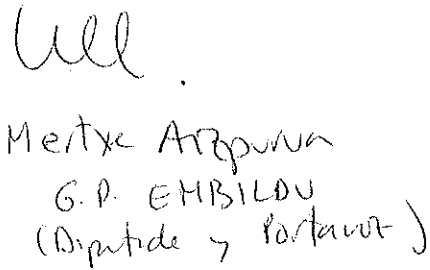 Mertxe Aizpurua
G.P. EHBILDU
(Diputada y Portavoz)